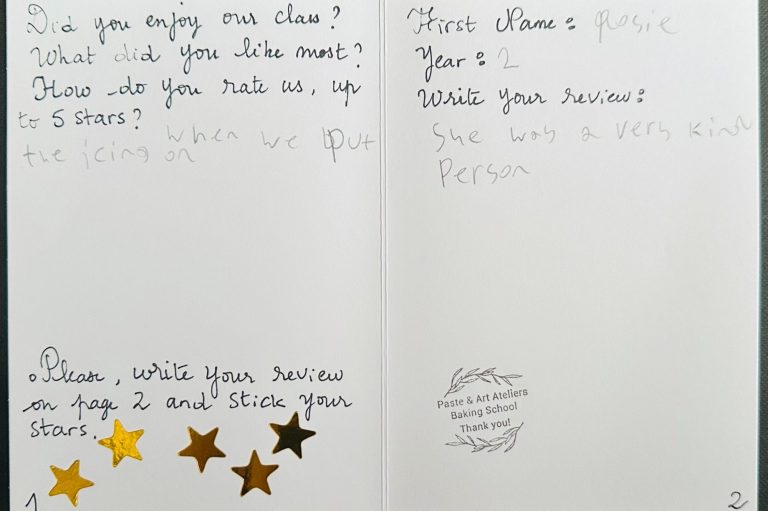 Did you enjoy our class?
What did you like most?
How do you rate us, up
to 5 stars?
when we put
the icing on
Please, write your review
on page 2 and stick your
stars.
1
First Name: Rosie
Year: 2
Write your review:
She was a very kind
Person
Paste & Art Ateliers
Baking School
Thank you!
2